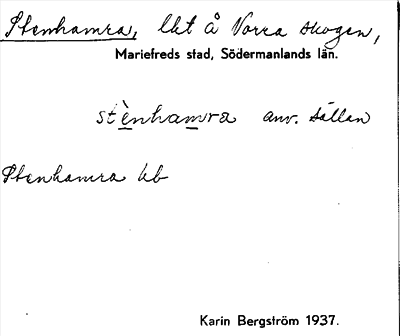 Stenhamra, lkt å Norra skogen,
Mariefreds stad, Södermanlands län.
stènhamra anv. sällan
Stenhamra kb
Karin Bergström 1937.